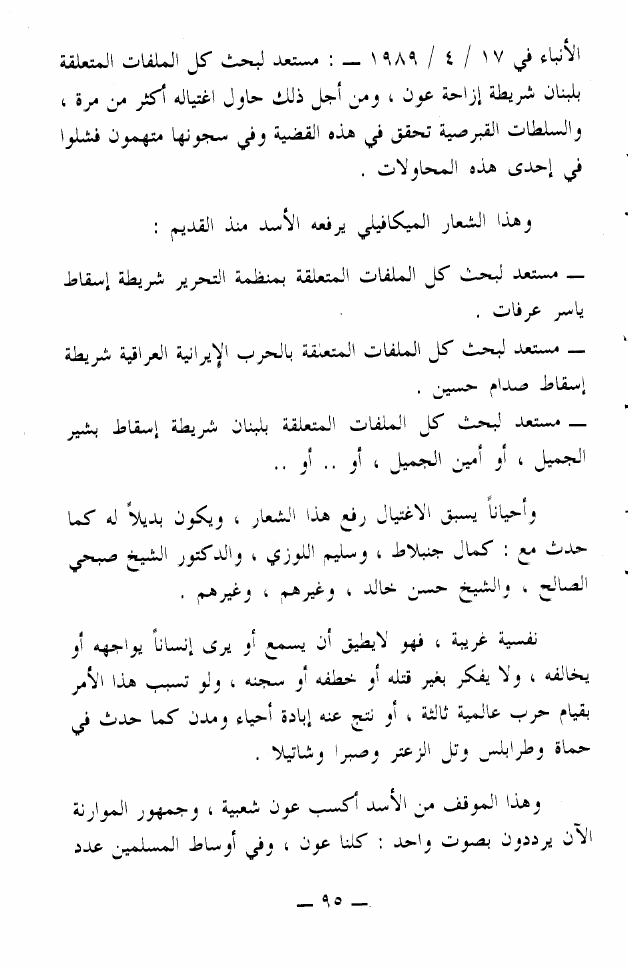 الأنباء في ١٧ / ٤ / ١٩٨٩ — : مستعد لبحث كل الملفات المتعلقة
بلبنان شريطة إزاحة عون ، ومن أجل ذلك حاول اغتياله أكثر من مرة ،
والسلطات القبرصية تحقق في هذه القضية وفي سجونها متهمون فشلوا
في إحدى هذه المحاولات .
وهذا الشعار الميكافيلي يرفعه الأسد منذ القديم :
— مستعد لبحث كل الملفات المتعلقة بمنظمة التحرير شريطة إسقاط
ياسر عرفات .
— مستعد لبحث كل الملفات المتعلقة بالحرب الإيرانية العراقية شريطة
إسقاط صدام حسين .
— مستعد لبحث كل الملفات المتعلقة بلبنان شريطة إسقاط بشير
الجميل ، أو أمين الجميل ، أو .. أو ..
وأحياناً يسبق الاغتيال رفع هذا الشعار ، ويكون بديلاً له كما
حدث مع : كمال جنبلاط ، وسليم اللوزي ، والدكتور الشيخ صبحي
الصالح ، والشيخ حسن خالد ، وغيرهم ، وغيرهم .
نفسية غريبة ، فهو لايطيق أن يسمع أو يرى إنساناً يواجهه أو
يخالفه ، ولا يفكر بغير قتله أو خطفه أو سجنه ، ولو تسبب هذا الأمر
بقيام حرب عالمية ثالثة ، أو نتج عنه إبادة أحياء ومدن كما حدث في
حماة وطرابلس وتل الزعتر وصبرا وشاتيلا .
وهذا الموقف من الأسد أكسب عون شعبية ، وجمهور الموارنة
الآن يرددون بصوت واحد : كلنا عون ، وفي أوساط المسلمين عدد
— ٩٥ —